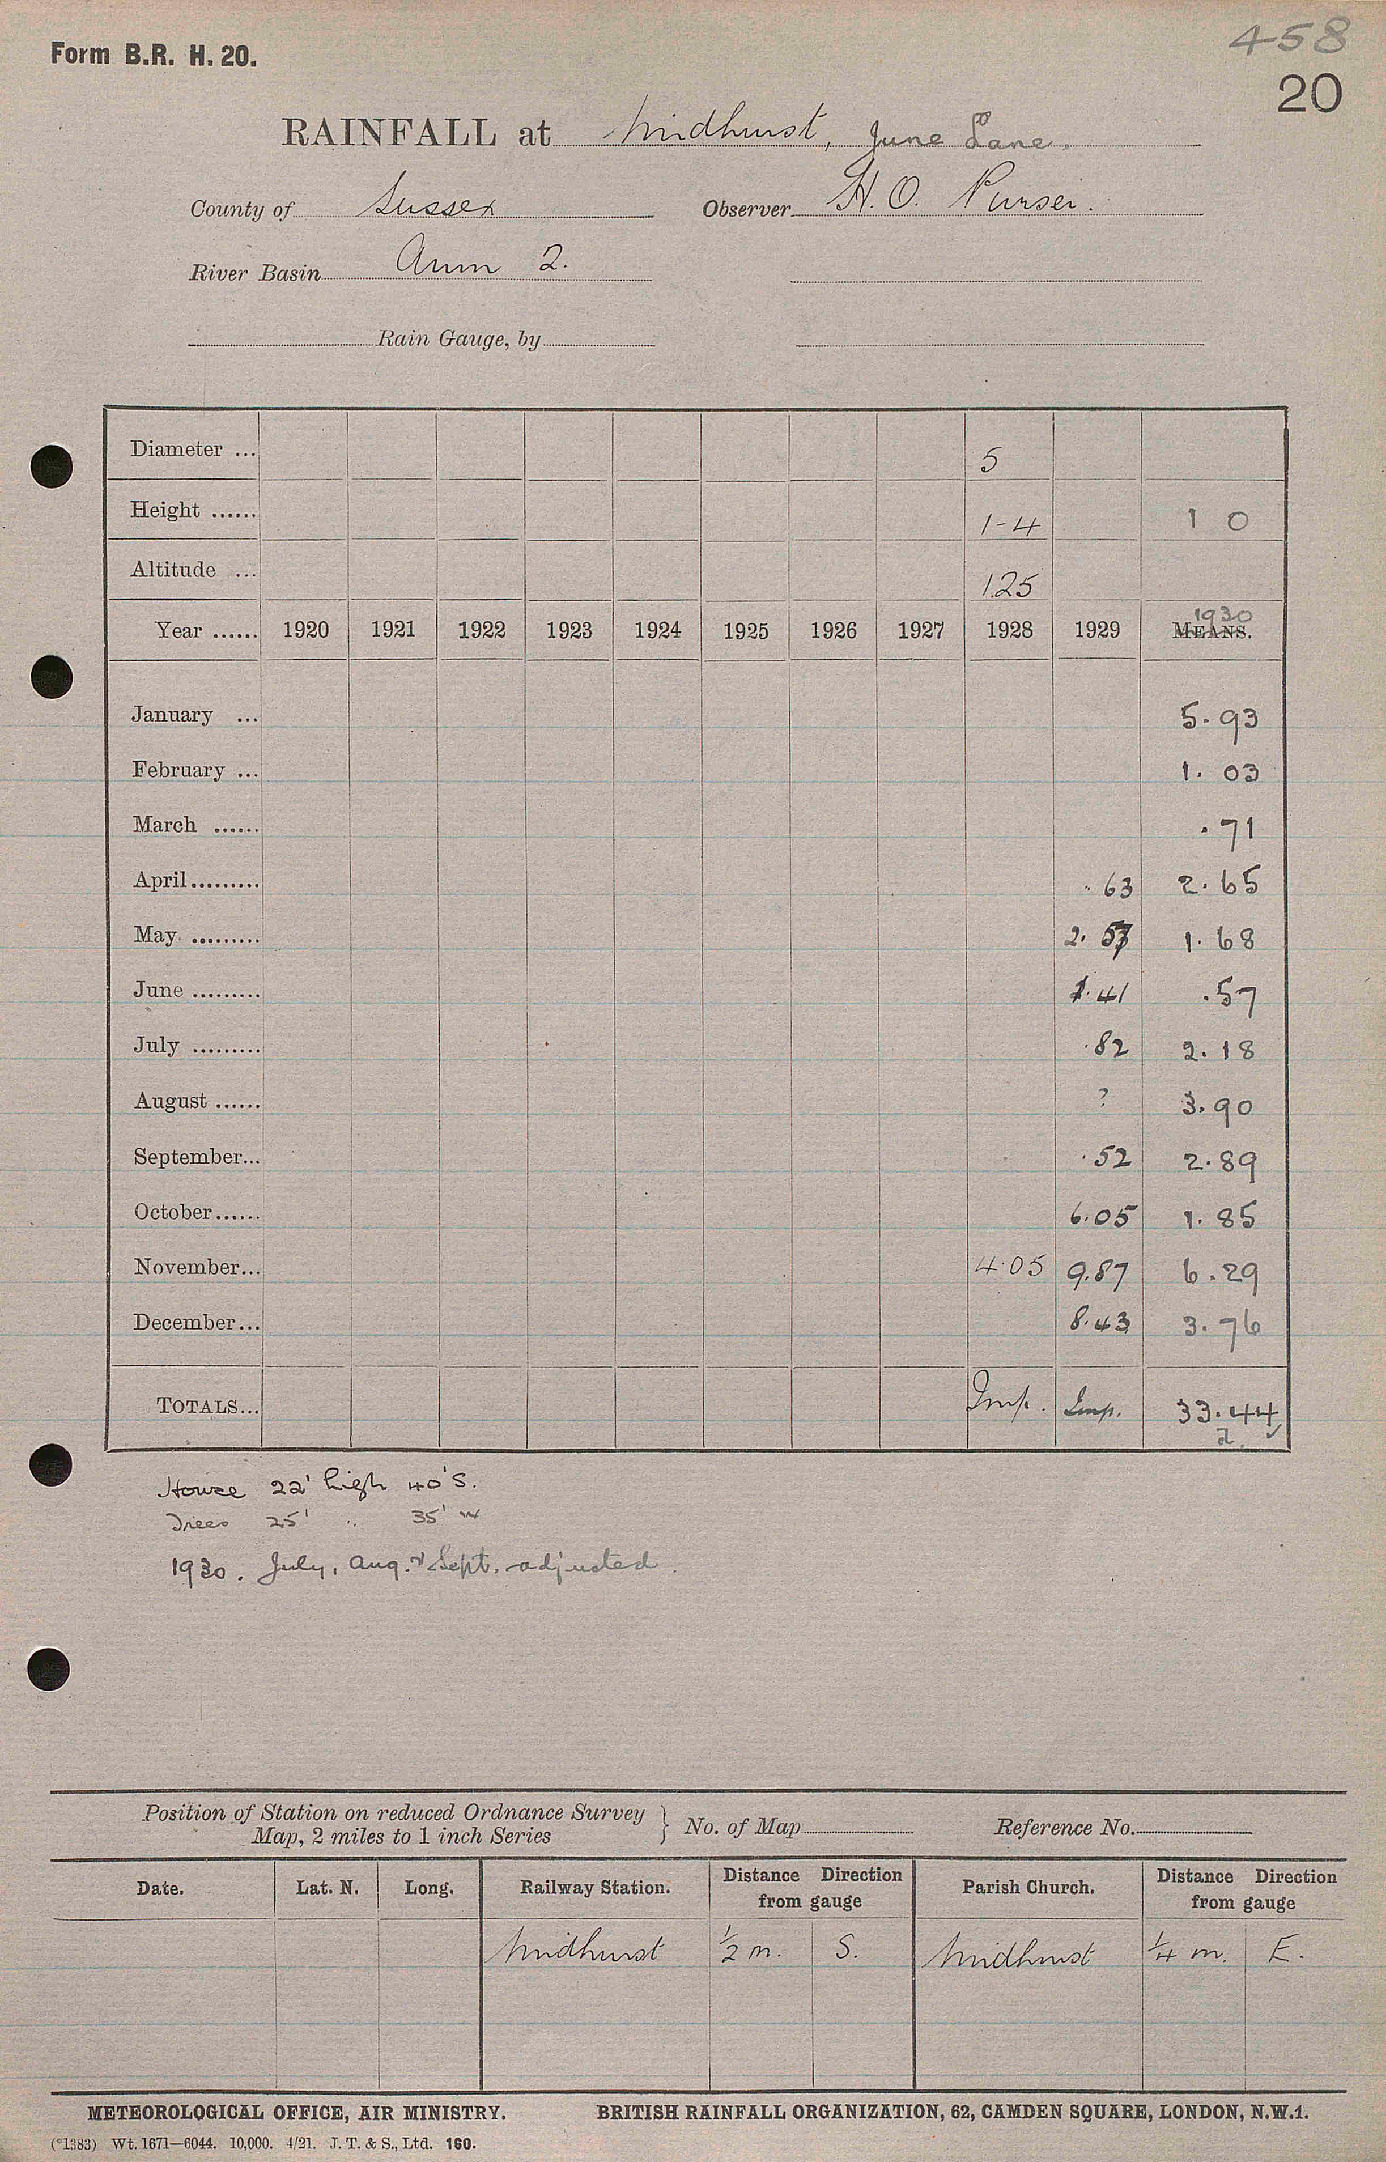 458
Form B.R. H. 20.
20
RAINFALL at Midhurst, June Lane.
County of Sussex Observer H. O. Purser.
River Basin Arun 2.
Rain Gauge, by
Diameter ... 5
Height ...... 1-4 1 0
Altitude ... 125
1930
Year ...... 1920 1921 1922 1923 1924 1925 1926 1927 1928 1929 MEANS.
January ... 5.93
February ... 1.03
March ...... .71
April ......... .63 2.65
May ......... 2.57 1.68
June ......... 1.41 .57
July ......... .82 2.18
August ...... ? 3.90
September... .52 2.89
October...... 6.05 1.85
November... 4.05 9.87 6.29
December... 8.43 3.76
TOTALS... Imp. Imp. 33.44
House 22' high 40' S.
Trees 25' " 35' W
1930. July, Aug. & Sept. adjusted.
Position of Station on reduced Ordnance Survey
Map, 2 miles to 1 inch Series } No. of Map Reference No.
Date. Lat. N. Long. Railway Station. Distance Direction from gauge Parish Church. Distance Direction from gauge
Midhurst ½ m. S. Midhurst ¼ m. E.
METEOROLOGICAL OFFICE, AIR MINISTRY. BRITISH RAINFALL ORGANIZATION, 62, CAMDEN SQUARE, LONDON, N.W.1.
(*1383) Wt. 1671—6044. 10,000. 4/21. J. T. & S., Ltd. 160.